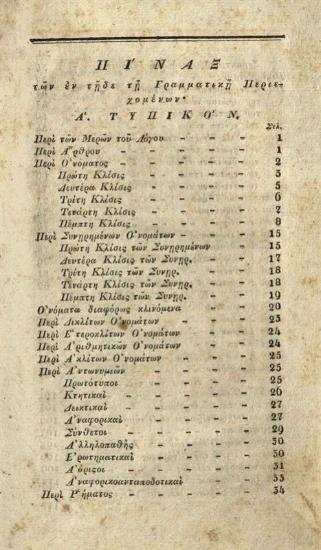 ΠΙ΄ΝΑΞ
τῶν ἐν τῇδε τῇ Γραμματικῇ Περιε-
χομένων·
Α΄. ΤΥΠΙΚΟ΄Ν.
Σελ.
Περὶ τῶν Μερῶν τοῦ Λόγου - - - 1
Περὶ Α῎ρθρου - - - - - 1
Περὶ Ο᾿νόματος - - - - - 2
Πρώτη Κλίσις - - - - - 3
Δευτέρα Κλίσις - - - - - 5
Τρίτη Κλίσις - - - - - 6
Τετάρτη Κλίσις - - - - - 7
Πέμπτη Κλίσις - - - - - 8
Περὶ Συνῃρημένων Ο᾿νομάτων - - - 15
Πρώτη Κλίσις τῶν Συνῃρημένων - - 15
Δευτέρα Κλίσις τῶν Συνῃρ. - - - 17
Τρίτη Κλίσις τῶν Συνῃρ. - - - 18
Τετάρτη Κλίσις τῶν Συνῃρ. - - - 18
Πέμπτη Κλίσις τῶν Συνῃρ. - - - 19
Ο᾿νόματα διαφόρως κλινόμενα - - - 20
Περὶ Δικλίτων Ο᾿νομάτων - - - - 23
Περὶ Ε῾τεροκλίτων Ο᾿νομάτων - - - 24
Περὶ Α᾿ριθμητικῶν Ο᾿νομάτων - - - 24
Περὶ Α᾿κλίτων Ο᾿νομάτων - - - - 25
Περὶ Α᾿ντωνυμιῶν - - - - - 25
Πρωτότυποι - - - - - 25
Κτητικαὶ - - - - - 26
Δεικτικαὶ - - - - - 27
Α᾿ναφορικαὶ - - - - - 27
Σύνθετοι - - - - - 29
Α᾿λληλοπαθὴς - - - - - 30
Ε᾿ρωτηματικαὶ - - - - - 30
Α᾿όριςοι - - - - - 31
Α᾿ναφορικοανταποδοτικαὶ - - - 33
Περὶ Ρ῾ήματος - - - - - 34